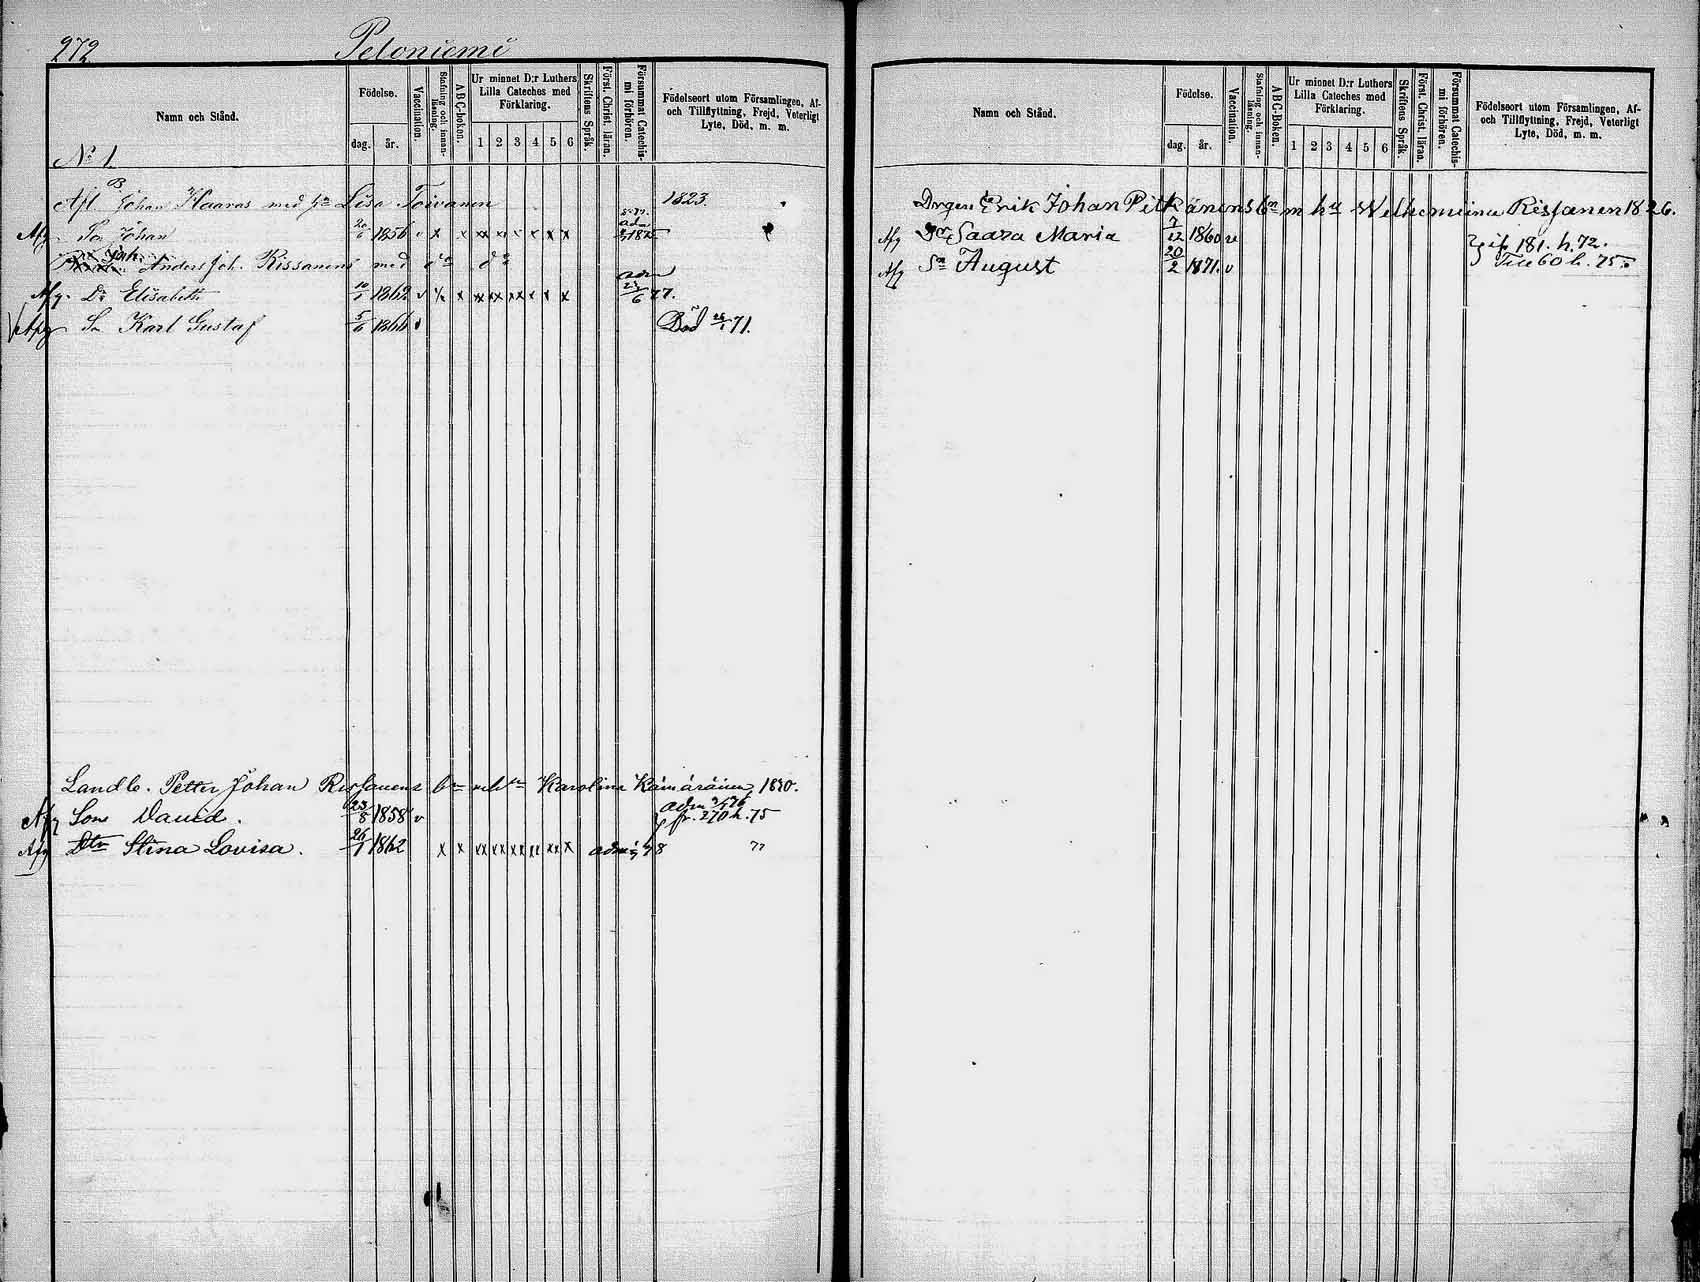 272 Peloniemi
Namn och Stånd.
Födelse.
dag. år.
Vaccination.
Stafning och innan-
läsning.
ABC-boken.
Ur minnet D:r Luthers
Lilla Cateches med
Förklaring.
1 2 3 4 5 6
Skriftens Språk.
Först. Christ. läran.
Försummat Catechis-
mi förhören.
Födelseort utom Församlingen, Af-
och Tillflyttning, Frejd, Veterligt
Lyte, Död, m. m.
No 1
Johan Haaras med Lisa Toivanen 1823.
Afg So Johan 20/6 1856 v x x xx x x x x x
Joh. Anders Joh. Rissanens med do do
Afg. Dr Elisabeth 10/1 1862 v x x xx xx xx x x x adm 23/6 77.
Afg So Karl Gustaf 5/6 1866 v Död 71.
Landb. Petter Johan Rissanens Karolina 1820.
Afg Son David. 23/8 1858 v fr. 270 h. 75
Afg Dtr Stina Lovisa. 26/1 1862 x x xx xx xx xx xx x 78 77
Namn och Stånd.
Födelse.
dag. år.
Vaccination.
Stafning och innan-
läsning.
ABC-Boken.
Ur minnet D:r Luthers
Lilla Cateches med
Förklaring.
1 2 3 4 5 6
Skriftens Språk.
Först. Christ. läran.
Försummat Catechis-
mi förhören.
Födelseort utom Församlingen, Af-
och Tillflyttning, Frejd, Veterligt
Lyte, Död, m. m.
Drgen Erik Johan Pitkänens bn m hu Welhemiina Rissanen 1826.
Afg Dr Saara Maria 7/12 1860 v if 181. h. 72.
Afg Sn August 20/2 1871. v Till 60 h. 75.